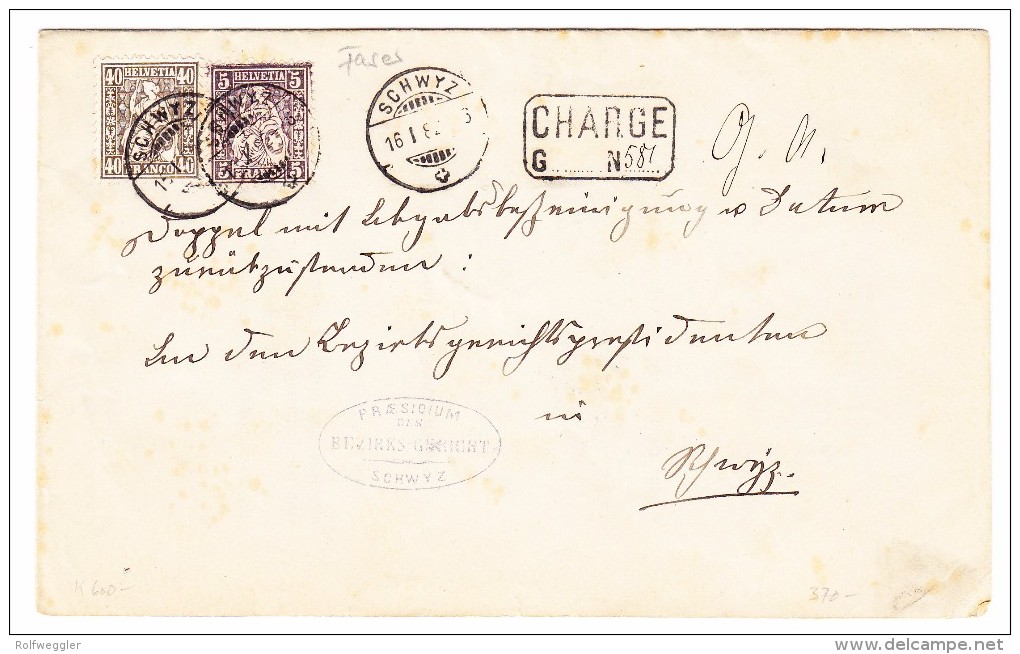 Faser
40 HELVETIA 40
40 FRANCO 40
5 HELVETIA 5
5 FRANCO 5
SCHWYZ
SCHWYZ
SCHWYZ
16 I 82
CHARGE
G N 581
G. U.
Doppel mit Abgabsbescheinigung u Datum
zurückzusenden :
An den Bezirksgerichtspräsidenten
in
Schwyz.
PRÆSIDIUM
DES
BEZIRKS-GERICHT
SCHWYZ
K 600-
370-
Rolfweggler
delcampe.net